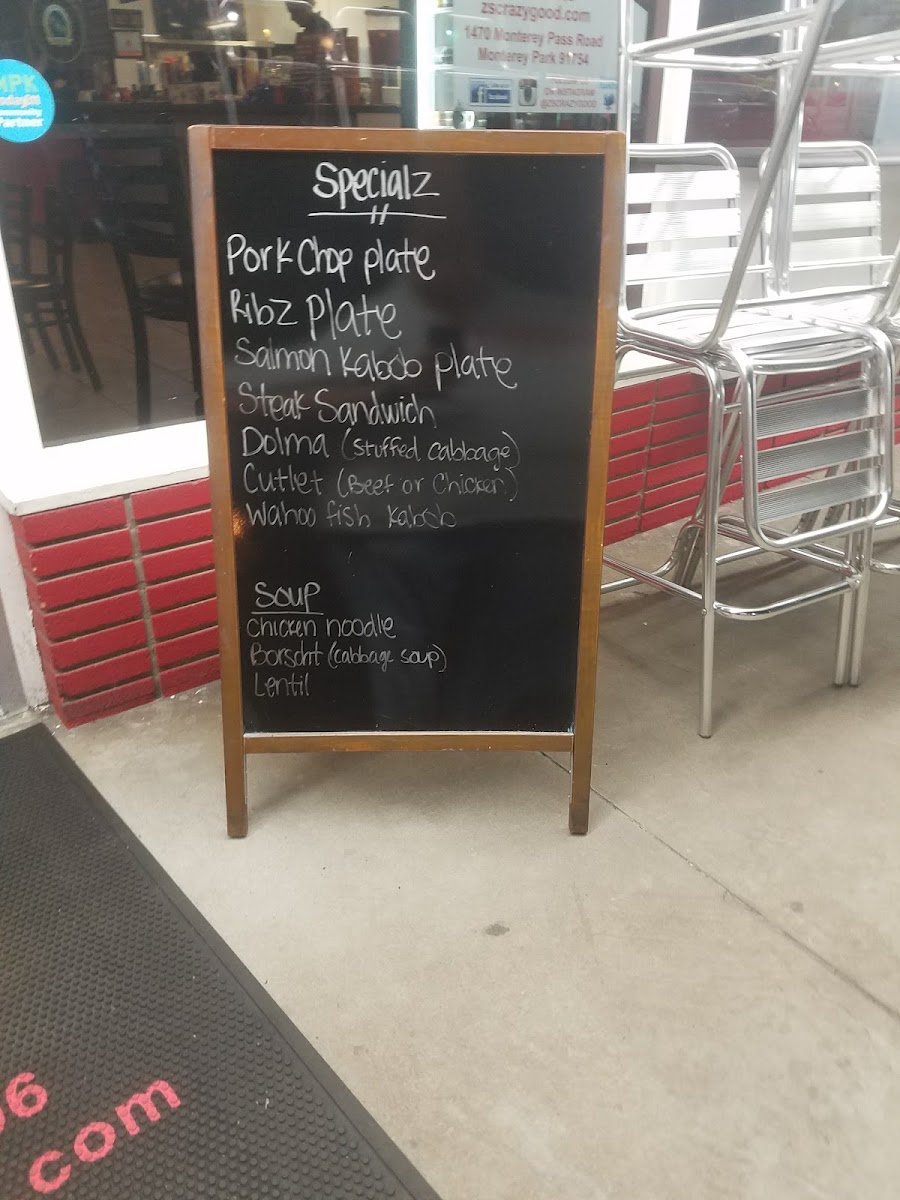 zscrazygood.com
1470 Monterey Pass Road
Monterey Park 91754
On INSTAGRAM
@ZSCRAZYGOOD
MPK
Partner
Specialz
Pork Chop plate
Ribz Plate
Salmon Kabob plate
Steak Sandwich
Dolma (stuffed cabbage)
Cutlet (Beef or Chicken)
Wahoo fish Kabob
Soup
chicken noodle
Borscht (cabbage soup)
Lentil
com